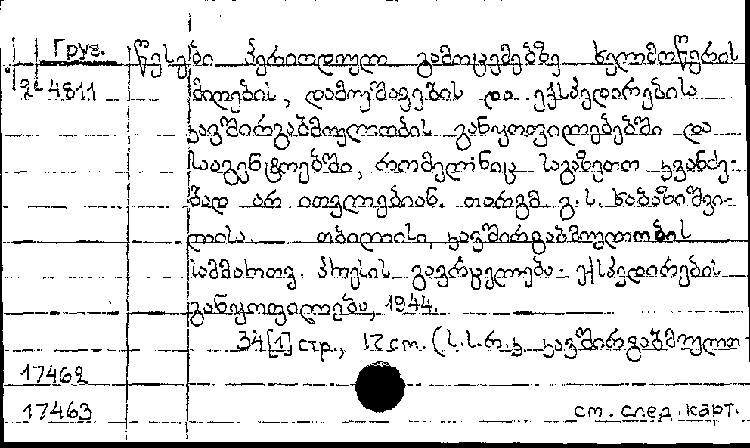 Груз. წესები პერიოდულ გამოცემებზე ხელმოწერის
2-4811 მიღების, დამუშავების და ექსპედირებისა
კავშირგაბმულობის განყოფილებებში და
სააგენტოებში, რომელნიც საგაზეთო კვანძე-
ბად არ ითვლებიან. თარგმ. გ. ს. ხაბაზიშვი-
ლისა. თბილისი, კავშირგაბმულობის
სამმართვ. პრესის გავრცელება-ექსპედირების
განყოფილება, 1944.
34 [1] стр., 12 см. (ს.ს.რ.კ. კავშირგაბმულო-
17462
17463 см. след. карт.